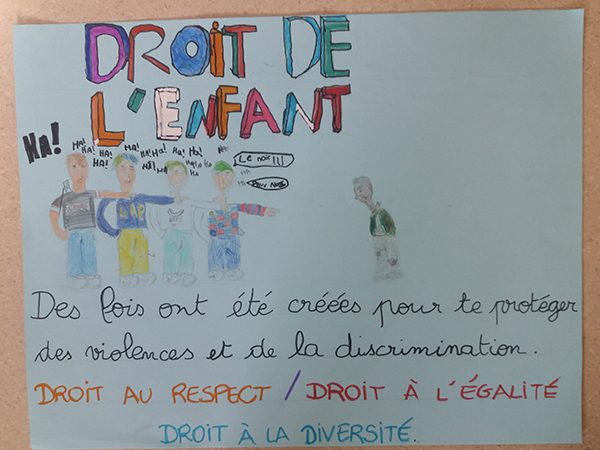 DROIT DE
L'ENFANT
HA!
HA! HA! HA! HA! HA! HA! HA!
Le noir!!!
Des lois ont été créées pour te protéger
des violences et de la discrimination.
DROIT AU RESPECT / DROIT À L'ÉGALITÉ
DROIT À LA DIVERSITÉ.